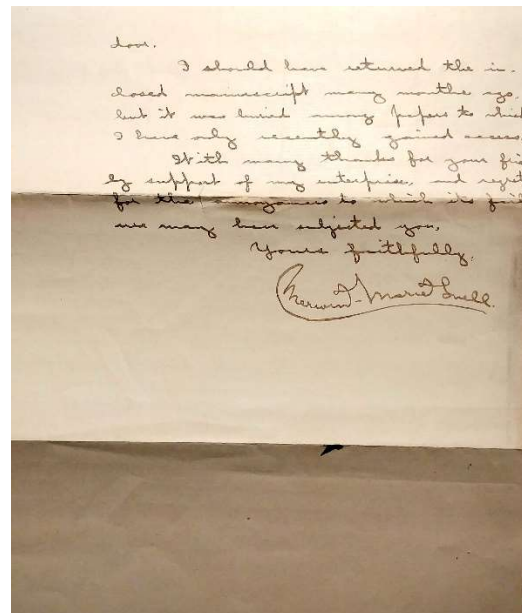 door.
I should have returned the in-
closed manuscript many months ago,
but it was buried among papers to which
I have only recently gained access.
With many thanks for your
ly support of my enterprise, and regret
for the annoyances to which its fail
ure may have subjected you,
Yours faithfully,
Merwin-Marie Snell.